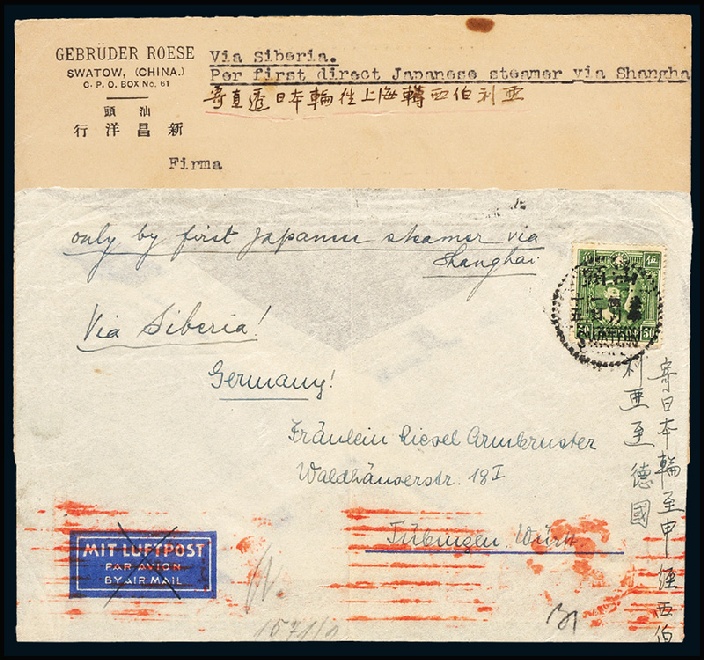 GEBRÜDER ROESE
SWATOW, (CHINA.)
C. P. O. BOX No. 61
頭 汕
行 洋 昌 新
Via Siberia.
Per first direct Japanese steamer via Shangha
寄直透日本輪往上海轉西伯利亞
Firma
only by first Japanese steamer via
Shanghai
Via Siberia!
Germany!
Fräulein Liesel Armbruster
Waldhäuserstr. 18 I
Tübingen, Württ.
寄日本輪至甲經西伯
利亞至德國
MIT LUFTPOST
PAR AVION
BY AIR MAIL
頭汕
SWATOW
50 50
31